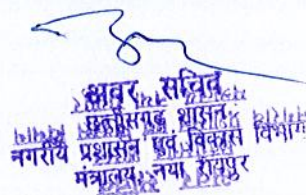 अवर सचिव
छत्तीसगढ़ शासन
नगरीय प्रशासन एवं विकास विभाग
मंत्रालय नया रायपुर